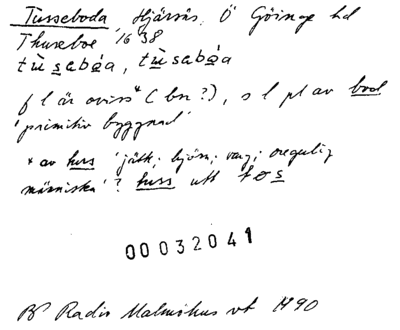 Tusseboda, Hjärsås, Ö Göinge hd
Thuseboe 1638
tùsabǫ́a, tùsabǫ̀a
f l är ovisst* (bn?), s l pl av bod
'primitiv byggnad'
* av tuss 'jätte; björn; varg; oregerlig
människa'? tuss utt tøs
00032041
BP Radio Malmöhus vt 1990